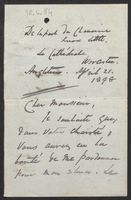 De la part du Chanoine
La Cathédrale
Worcester
Angleterre. April 21.
1898
Cher Monsieur,
Je souhaite que,
dans votre charité,
vous aurez eu la
bonté de me pardonner
pour mon silence. Le